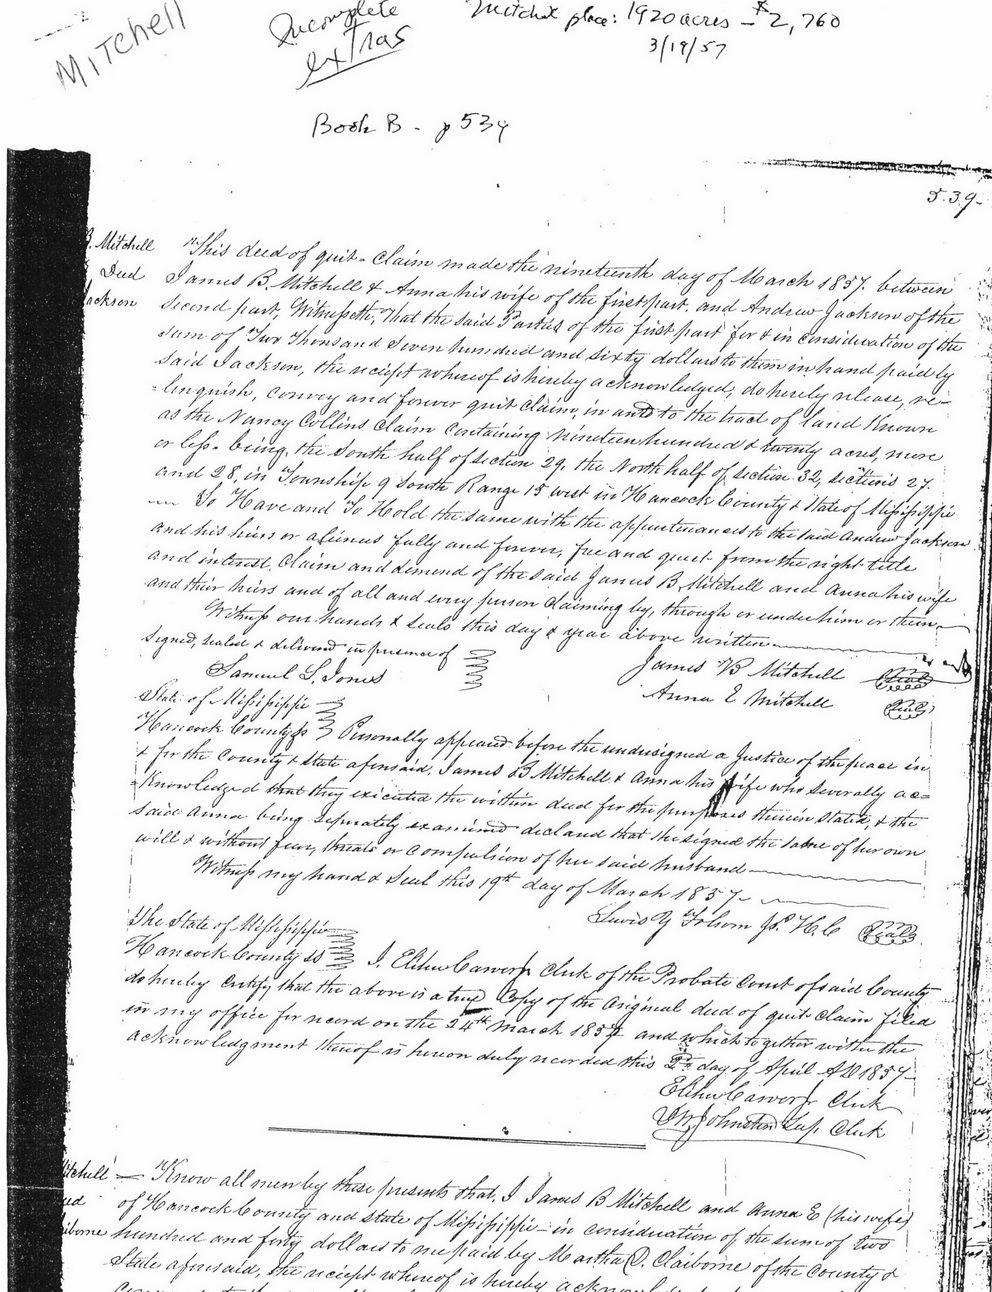 Mitchell
Incomplete
extras
Mitchel place: 1920 acres - $2,760
3/19/57
Book B - p 539
5.3.9-
B. Mitchell
Deed
Jackson
This deed of quit-Claim made the nineteenth day of March 1857. between
James B. Mitchell & Anna his wife of the first part, and Andrew Jackson of the
Second part, Witnesseth, That the said Parties of the first part for & in consideration of the
sum of Two Thousand Seven hundred and sixty dollars to them in hand paid by
said Jackson, the reciept whereof is hereby acknowledged, do hereby release, re-
-linquish, convey and forever quit Claim, in and to the tract of land Known
as the Nancy Collins Claim Containing nineteen hundred & twenty acres, more
or less - being, the South half of section 29, the North half of section 32, sections 27.
and 28, in Township 9 South Range 15 west in Hancock County & State of Mississippi
To Have and To Hold the same with the appurtenances to the said Andrew Jackson
and his heirs or assigns fully and forever, free and quiet from the right title
and interest, Claim and demand of the said James B. Mitchell and Anna his wife
and their heirs and of all and every person claiming by, through or under him or them
Witness our hands & seals this day & year above written
Signed, sealed & delivered in presence of
Samuel L. Jones
James B Mitchell Seal
Anna E Mitchell Seal
State of Mississippi
Hancock County ss Personally appeared before the undersigned a Justice of the peace in
& for the County & State aforesaid, James B Mitchell & Anna his wife who severally ac=
=Knowledged that they executed the within deed for the purposes therein stated, & the
said Anna being seperately examined declared that she signed the same of her own
will & without fear, threats or compulsion of her said husband
Witness my hand & Seal this 19th day of March 1857
Lewis Folsom J.P. H.C Seal
The State of Mississippi
Hancock County ss I, Elihu Carver Jr Clerk of the Probate Court of said County
do hereby Certify that the above is a true Copy of the Original deed of quit Claim filed
in my office for record on the 24th March 1857 and which together with the
acknowledgment thereof is hereon duly recorded this 2d day of April AD 1857
Elihu Carver Jr Clerk
Johnston Dep. Clerk
Mitchell
Claiborne
Know all men by these presents that, I James B Mitchell and Anna E (his wife)
of Hancock County and state of Mississippi - in consideration of the sum of two
hundred and forty dollars to me paid by Martha D. Claiborne of the County &
State aforesaid, the reciept whereof is hereby